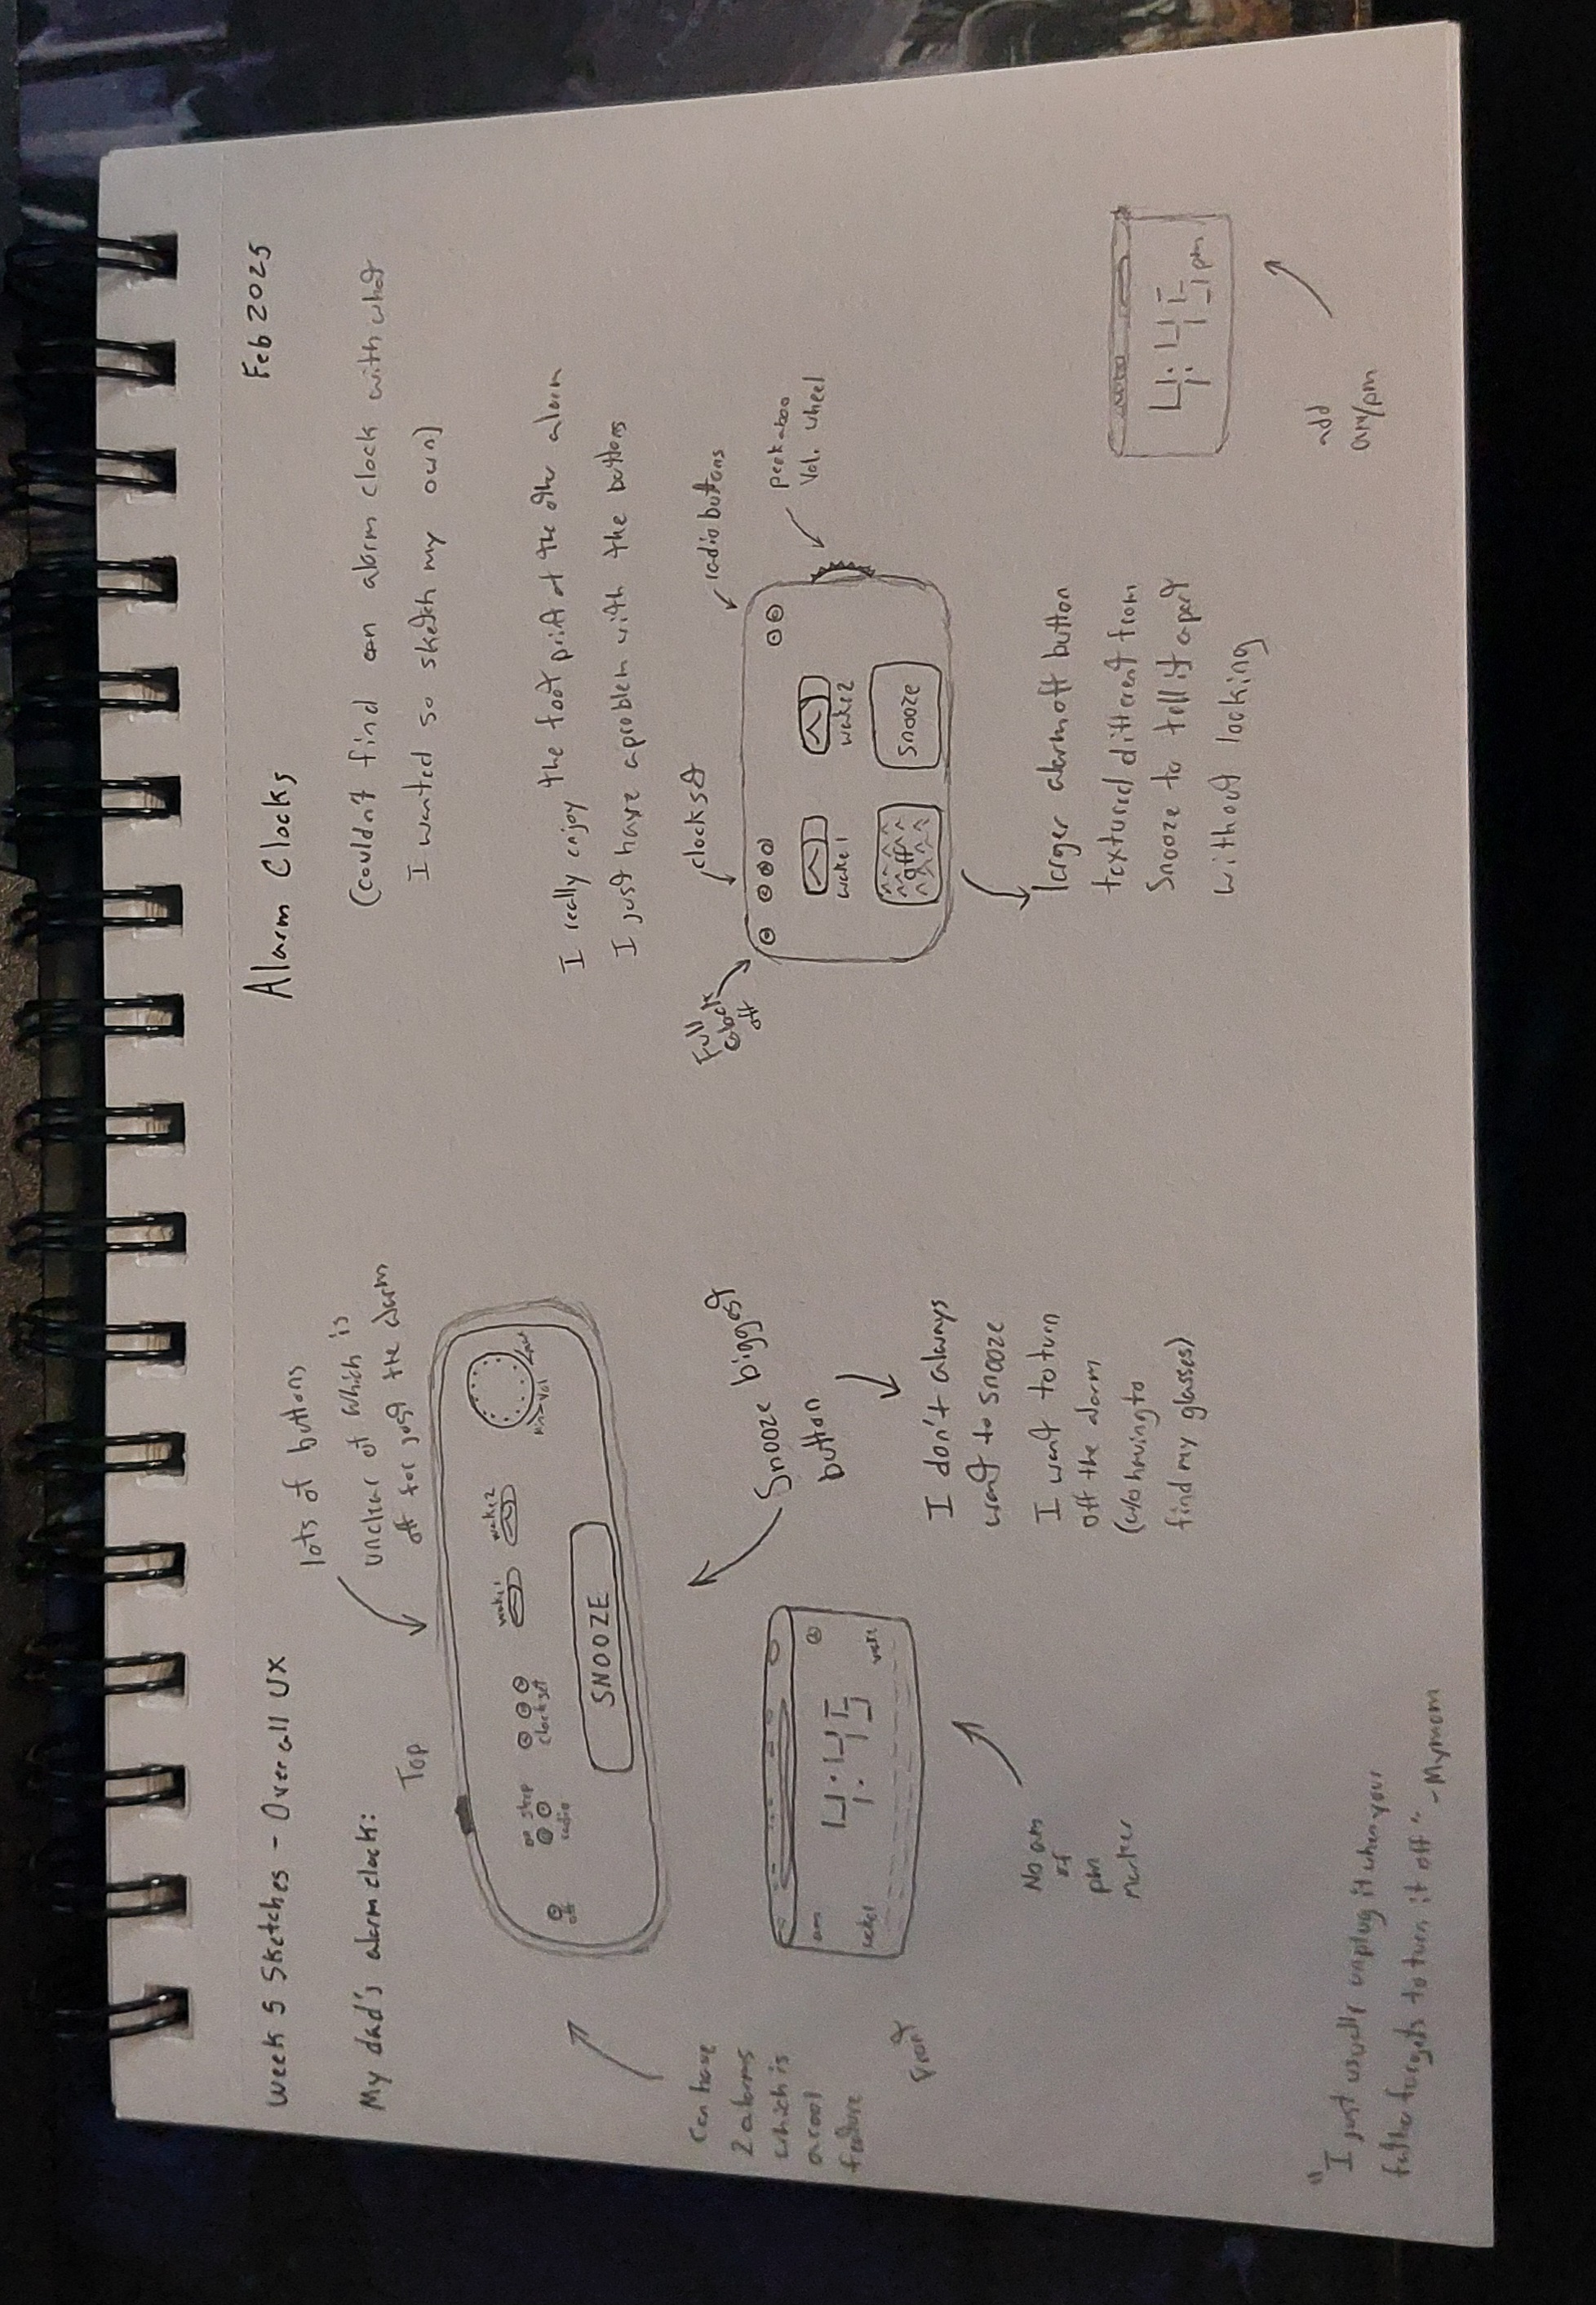 Week 5 Sketches - Overall UX
My dad's alarm clock:
Top
lots of buttons
unclear of which is
off for just the alarm
off
on sleep
radio
clock set
wake1
wake2
Min Vol max
SNOOZE
Can have
2 alarms
which is
a cool
feature
am
4:45
wake1
wake
Front
No am
of
pm
marker
Snooze biggest
button
I don't always
want to snooze
I want to turn
off the alarm
(w/o having to
find my glasses)
"I just usually unplug it when your
father forgets to turn it off" - My mom
Alarm Clocks
Feb 2025
(couldn't find an alarm clock with what
I wanted so sketch my own)
I really enjoy the foot print of the other alarm
I just have a problem with the buttons
Full
clock
off
clock set
radio buttons
peekaboo
Vol. wheel
wake 1
wake 2
off
Snooze
larger alarm off button
textured different from
Snooze to tell it apart
without looking
4:45 pm
add
am/pm